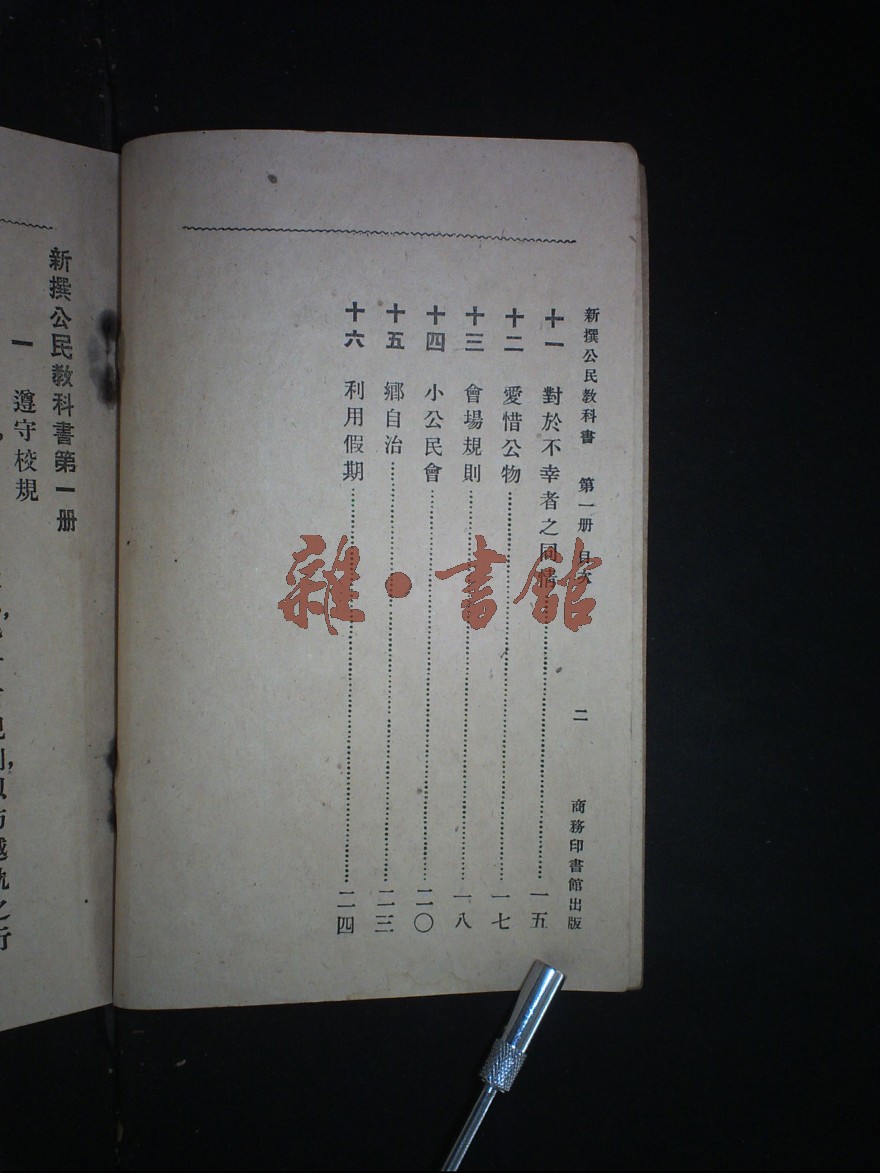 新撰公民教科書 第一册 目次 二 商務印書館出版
十一 對於不幸者之同情 一五
十二 愛惜公物 一七
十三 會場規則 一八
十四 小公民會 二〇
十五 鄉自治 二三
十六 利用假期 二四
新撰公民教科書第一册
一 遵守校規
雜・書館